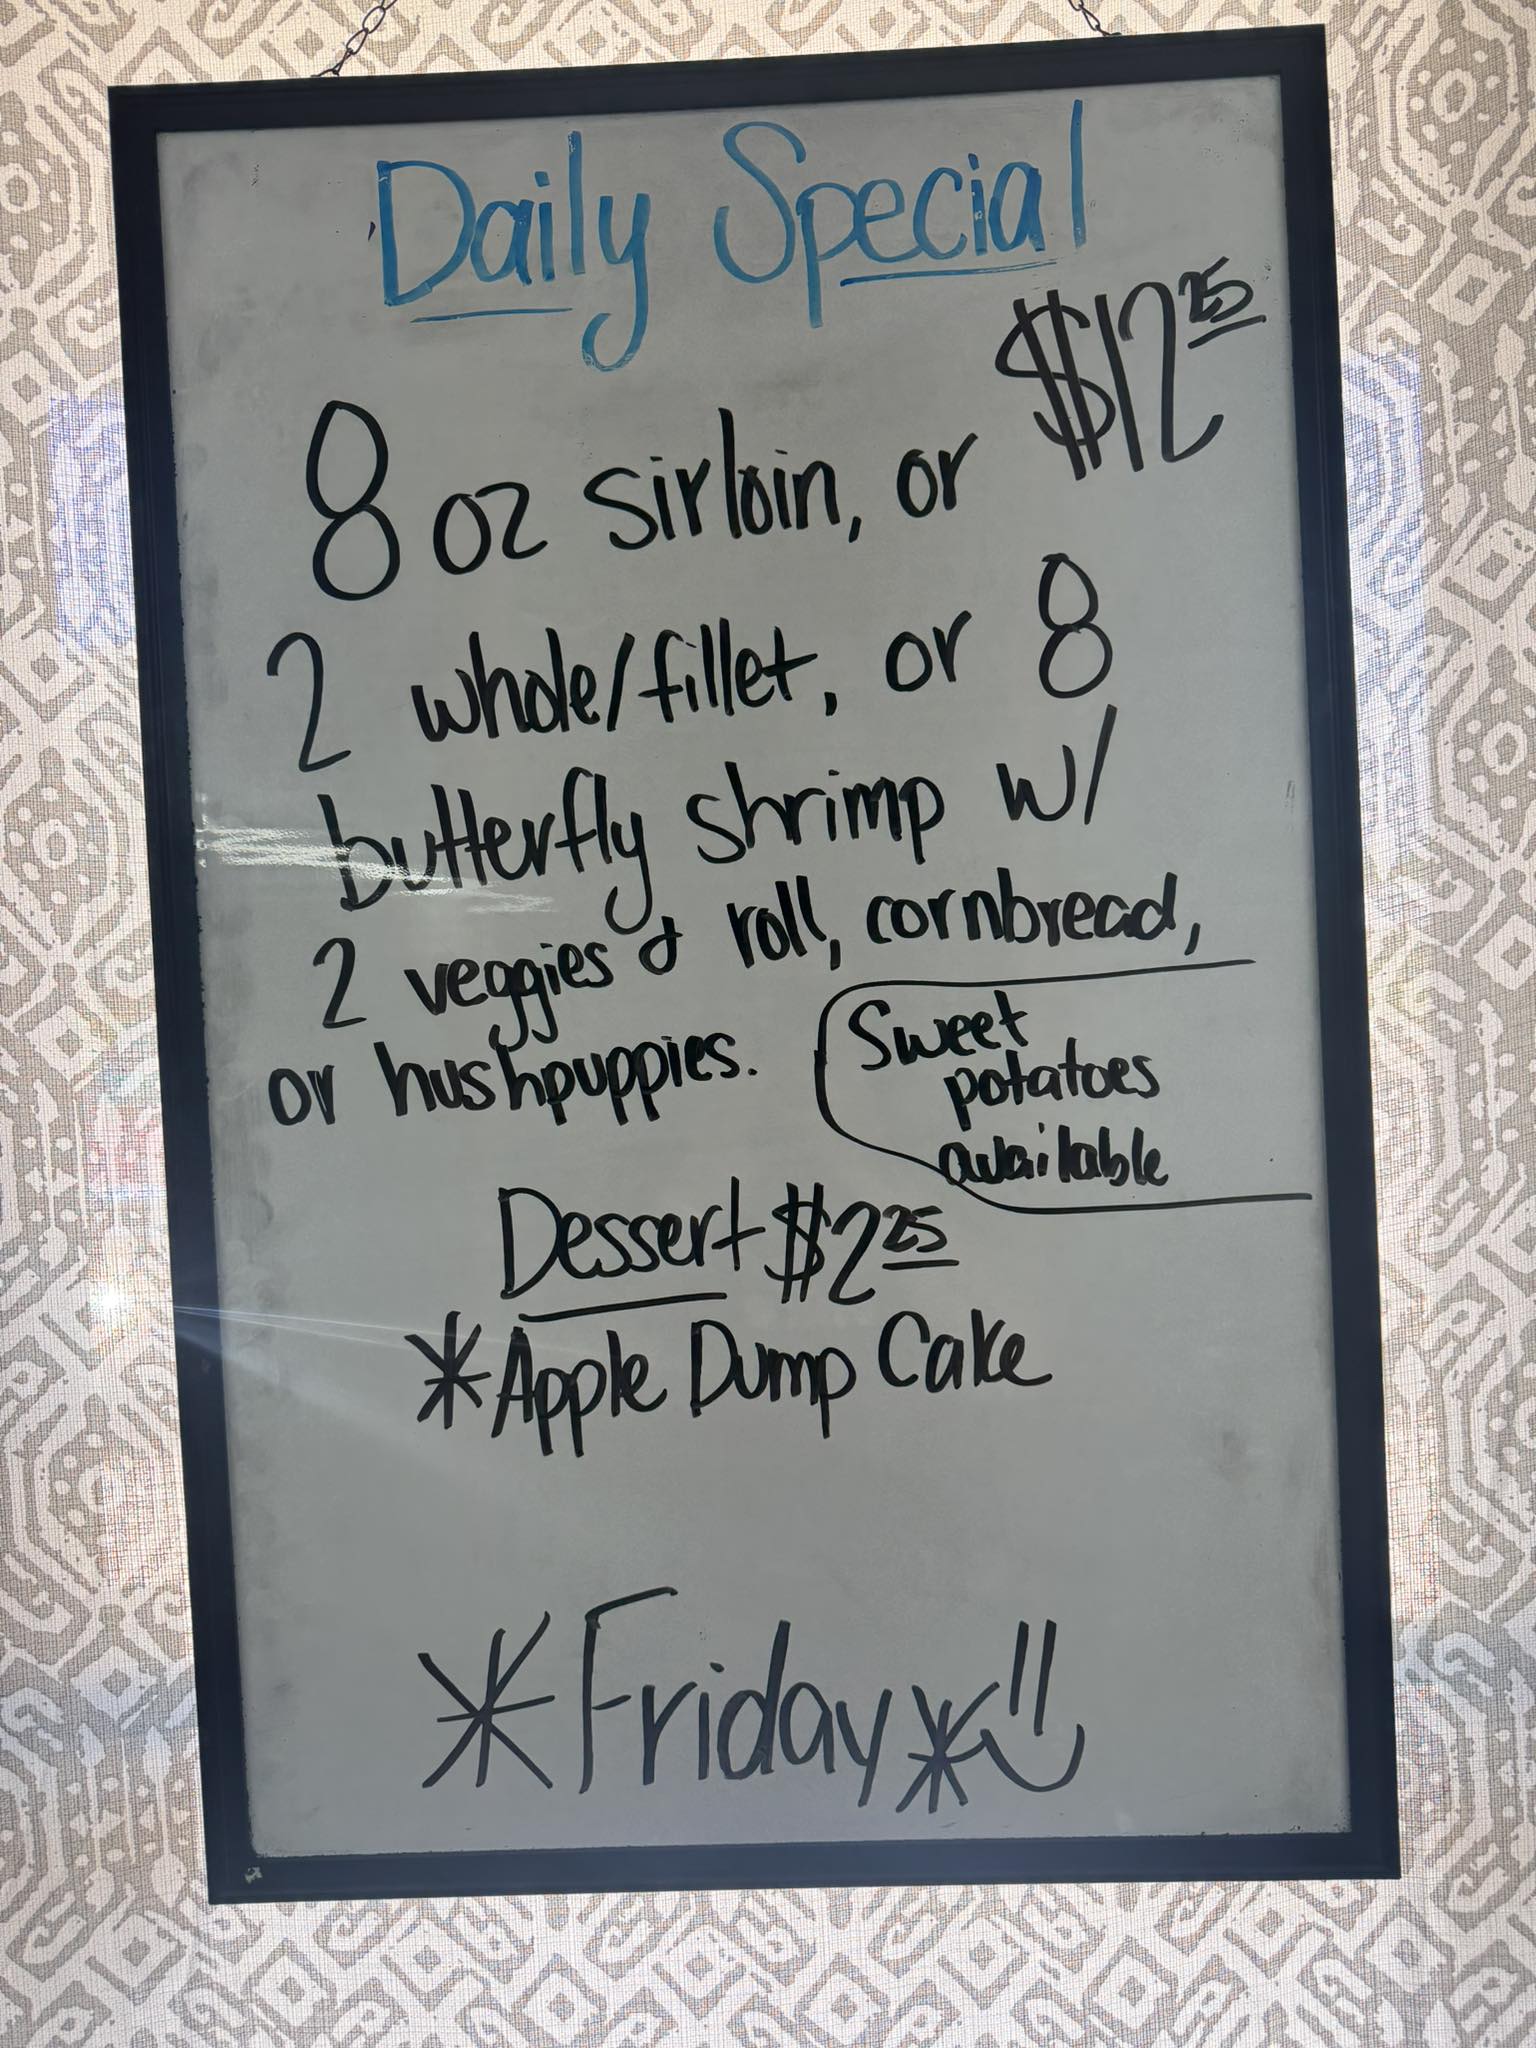 Daily Special
$12.25
8 oz sirloin, or
2 whole/fillet, or 8
butterfly shrimp w/
2 veggies & roll, cornbread,
or hushpuppies.
Sweet
potatoes
available
Dessert $2.25
*Apple Dump Cake
*Friday*